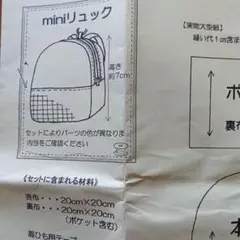 miniリュック
高さ
約7cm
セットによりパーツの色が異なります
内容をご確認ください
《セットに含まれる材料》
表布・・・20cm×20cm
裏布・・・20cm×20cm
(ポケット含む)
肩ひも用テープ
【実物大型紙】
縫い代1cm含ま
ポ
裏布
本